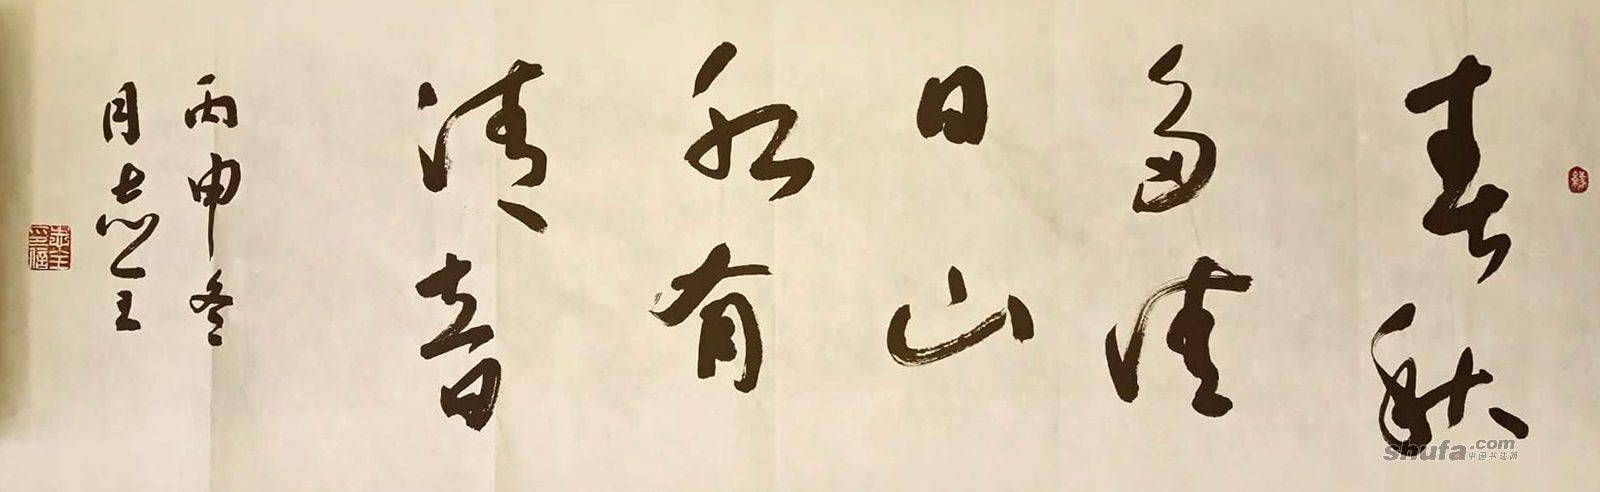 缘
春秋
多佳
日山
水有
清音
丙申冬
月志全
shufa.com
中国书法网